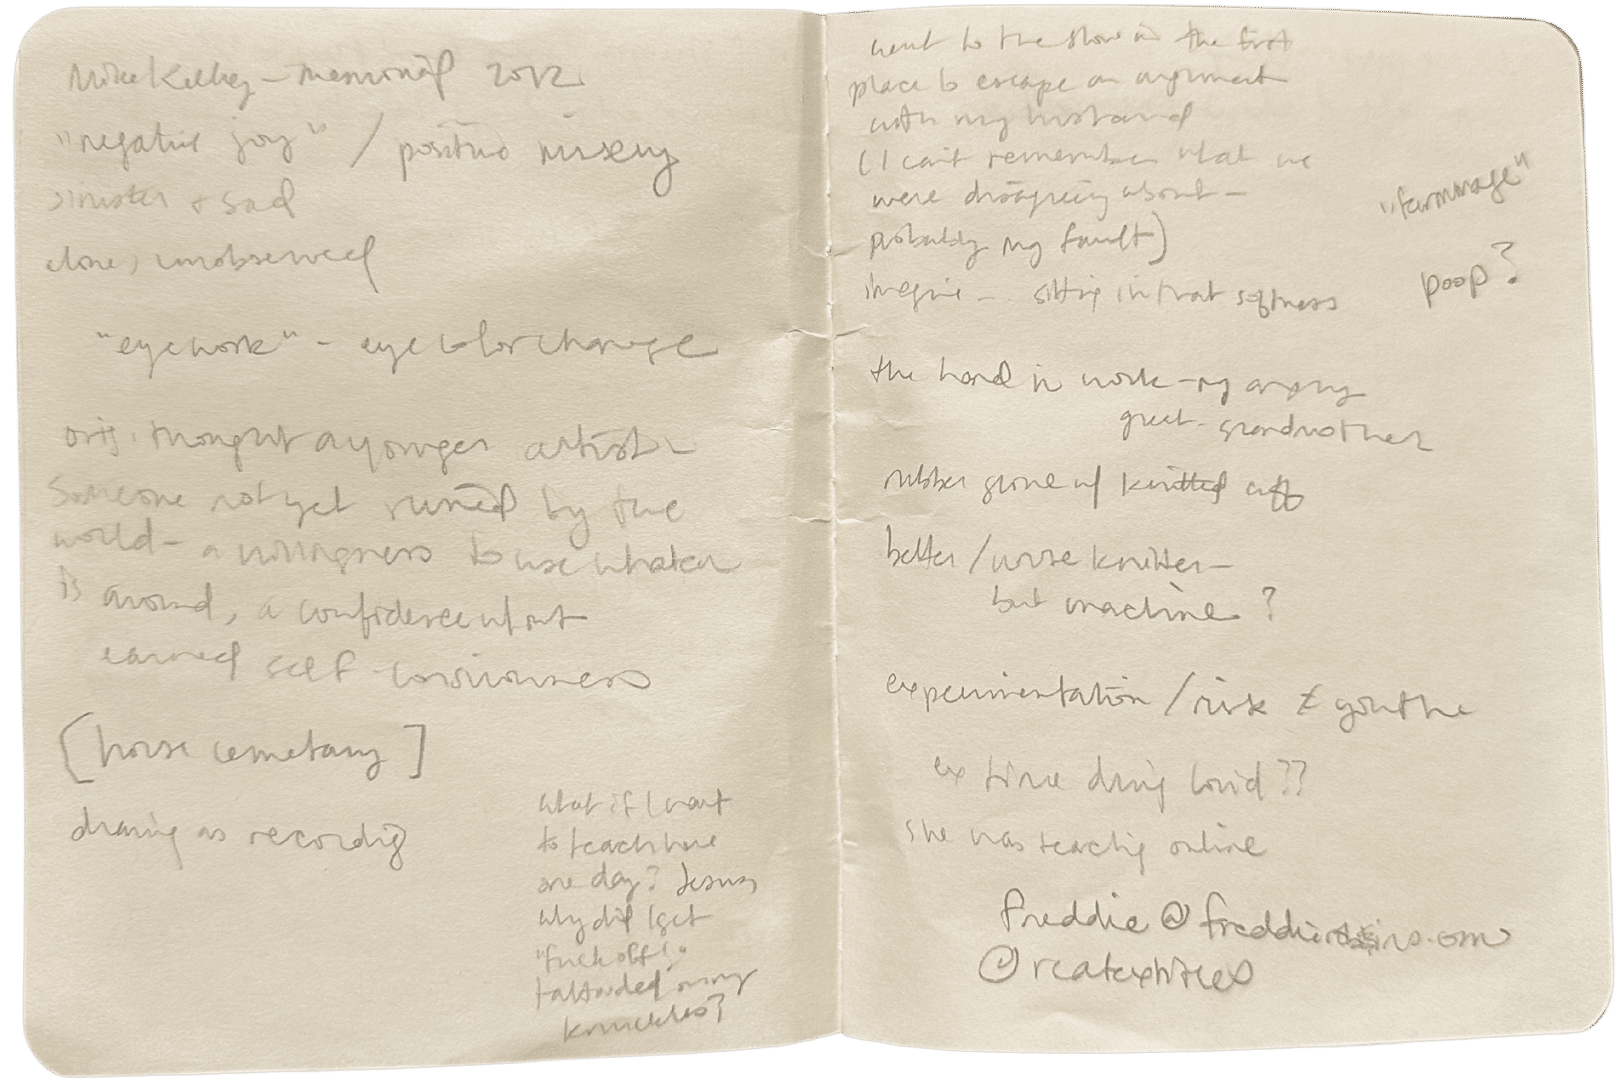 Mike Kelley – memorial 2012
"negative joy" / positive misery
sinister + sad
alone, unobserved
"eyework" – eye color change
orig. thought a younger artist
Someone not yet ruined by the
world – a willingness to use whatever
is around, a confidence w/out
earned self-consciousness
[horse cemetary]
drawing as recording
what if I want
to teach here
one day? Jesus
why did I get
"fuck off!"
tattooed on my
knuckles?
went to the show in the first
place to escape an argument
with my husband
(I can't remember what we
were disagreeing about –
probably my fault)
imagine – sitting in that softness
"farmmage"
poop?
the hand in work – my angry
great-grandmother
rubber glove w/ knitted cuff
better / worse knitter –
but machine?
experimentation / risk ≠ youth
ex time during covid??
she was teaching online
freddie@
@